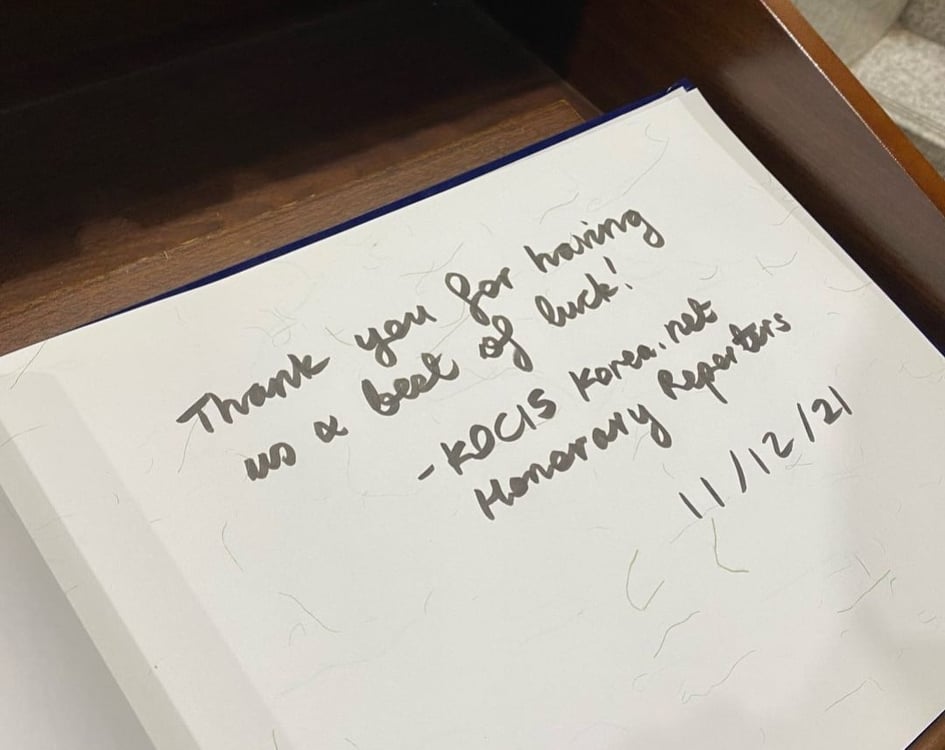 Thank you for having
us & best of luck!
-KOCIS Korea.net
Honorary Reporters
11/12/21